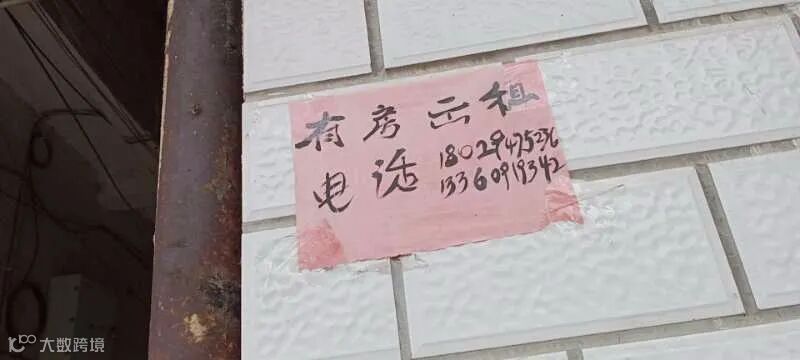 有房出租
电话 18029475236
13360919342
大数跨境